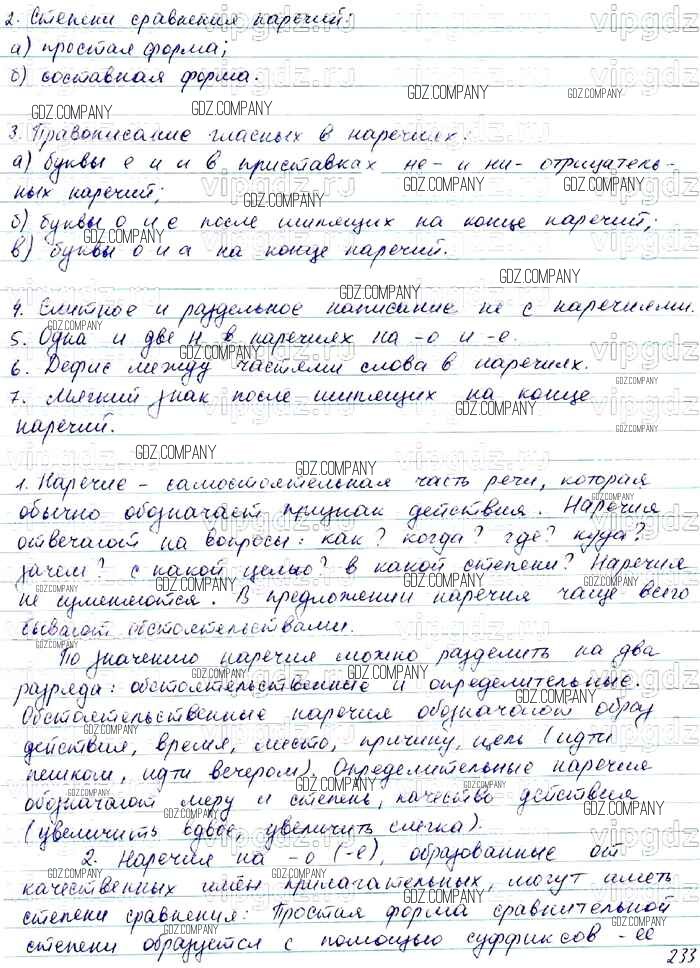 2. Степени сравнения наречий:
а) простая форма;
б) составная форма.
3. Правописание гласных в наречиях:
а) буквы е и и в приставках не- и ни- отрицатель-
ных наречий;
б) буквы о и е после шипящих на конце наречий;
в) буквы о и а на конце наречий.
4. Слитное и раздельное написание не с наречиями.
5. Одна и две н в наречиях на -о и -е.
6. Дефис между частями слова в наречиях.
7. Мягкий знак после шипящих на конце
наречий.
1. Наречие - самостоятельная часть речи, которая
обычно обозначает признак действия. Наречия
отвечают на вопросы: как? когда? где? куда?
зачем? с какой целью? в какой степени? Наречия
не изменяются. В предложении наречия чаще всего
бывают обстоятельствами.
По значению наречия можно разделить на два
разряда: обстоятельственные и определительные.
Обстоятельственные наречия обозначают образ
действия, время, место, причину, цель (идти
пешком, идти вечером). Определительные наречия
обозначают меру и степень, качество действия
(увеличить вдвое, увеличить слегка).
2. Наречия на -о (-е), образованные от
качественных имён прилагательных, могут иметь
степени сравнения: Простая форма сравнительной
степени образуется с помощью суффиксов -ее
233